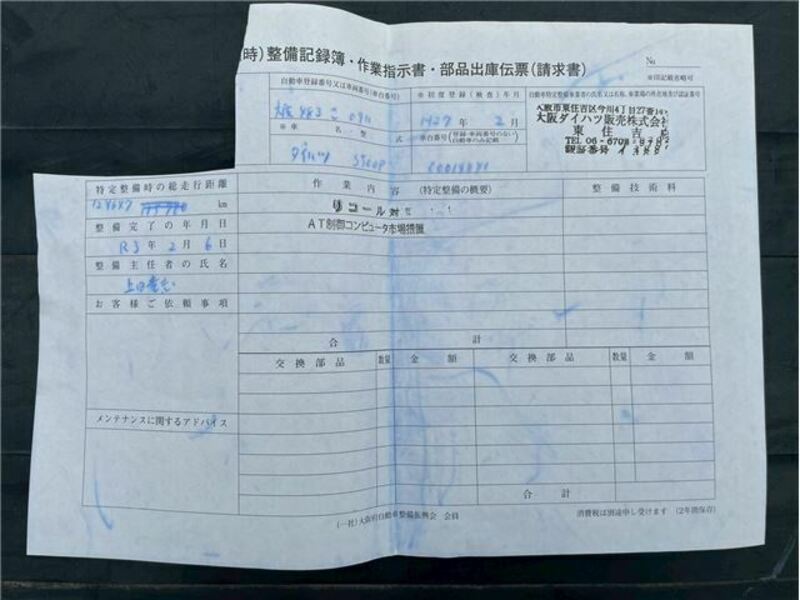 時）整備記録簿・作業指示書・部品出庫伝票（請求書）
No
※印記載省略可
自動車登録番号又は車両番号（車台番号）
※初度登録（検査）年月
自動車特定整備事業者の氏名又は名称、事業場の所在地及び認証番号
H27年 2月
大阪市東住吉区今川4丁目27番
大阪ダイハツ販売株式会社
東住吉店
TEL 06-6708-
※車名・型式
車台番号（登録・車両番号のない自動車のみ記載）
ダイハツ S500P
特定整備時の総走行距離
km
作業内容（特定整備の概要）
整備技術料
リコール対
AT制御コンピュータ市場措置
整備完了の年月日
R3年 2月 6日
整備主任者の氏名
お客様ご依頼事項
合計
交換部品
数量
金額
交換部品
数量
金額
メンテナンスに関するアドバイス
合計
（一社）大阪府自動車整備振興会 会員
消費税は別途申し受けます（2年間保存）